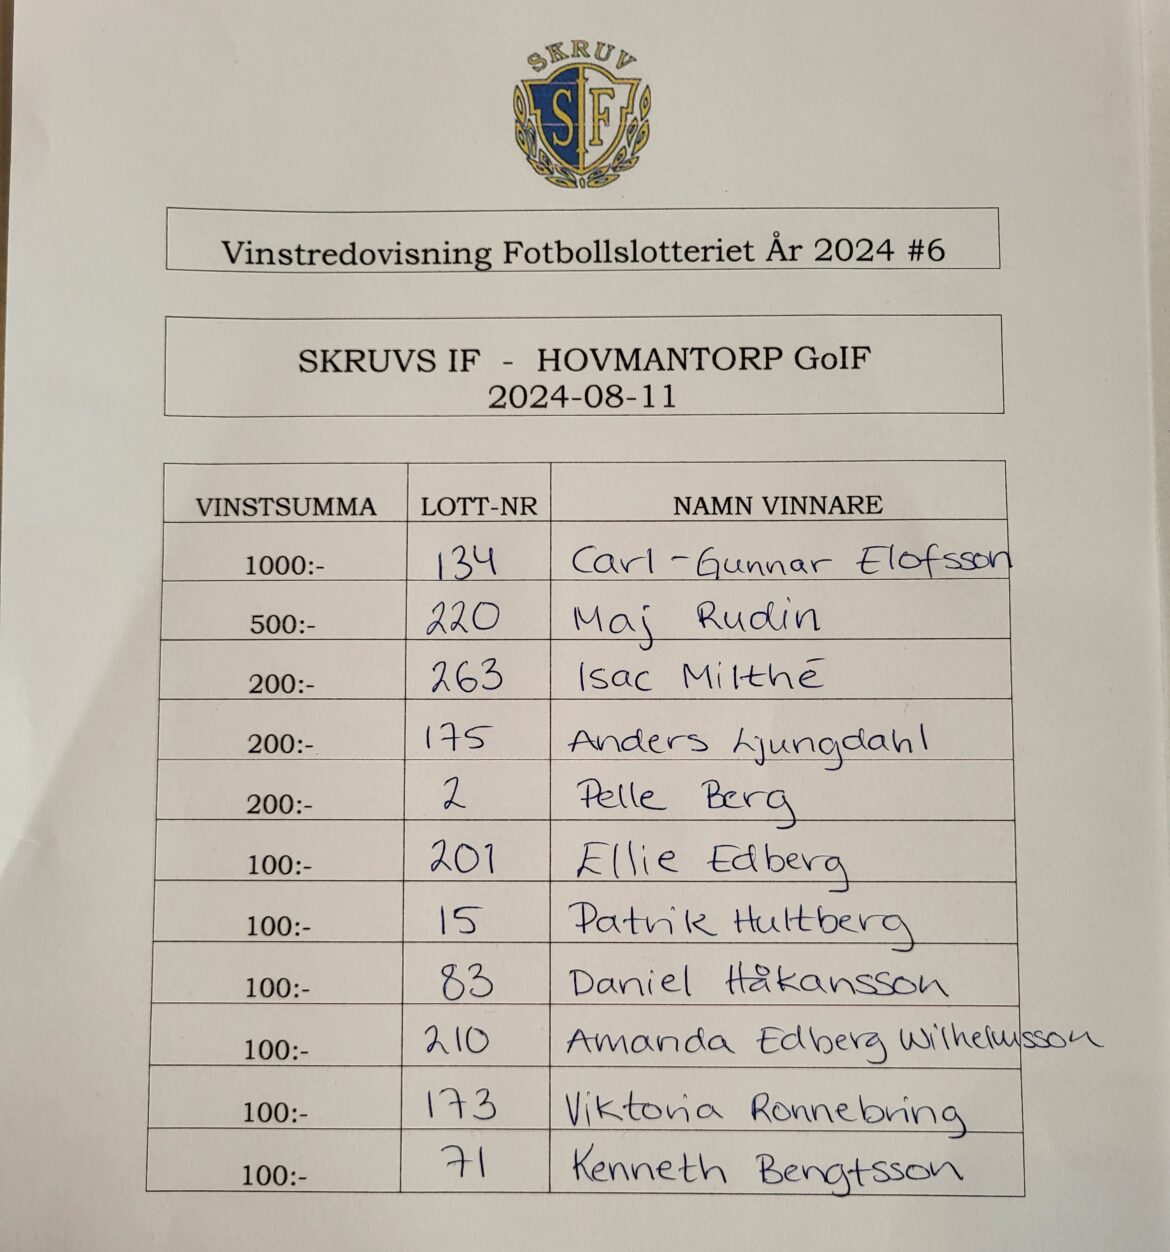 SKRUV
SIF
Vinstredovisning Fotbollslotteriet År 2024 #6
SKRUVS IF - HOVMANTORP GoIF
2024-08-11
VINSTSUMMA LOTT-NR NAMN VINNARE
1000:- 134 Carl-Gunnar Elofsson
500:- 220 Maj Rudin
200:- 263 Isac Milthé
200:- 175 Anders Ljungdahl
200:- 2 Pelle Berg
100:- 201 Ellie Edberg
100:- 15 Patrik Hultberg
100:- 83 Daniel Håkansson
100:- 210 Amanda Edberg Wilhelmsson
100:- 173 Viktoria Ronnebring
100:- 71 Kenneth Bengtsson